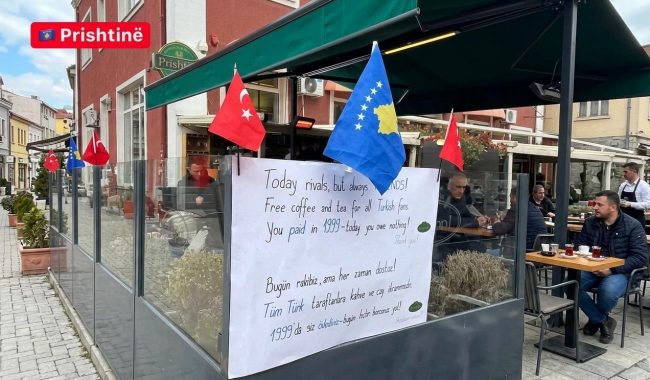 Prishtinë
Prishtinë
Today rivals, but always FRIENDS!
Free coffee and tea for all Turkish fans.
You paid in 1999-today you owe nothing!
Thank you
Bugün rakibiz, ama her zaman dostuz!
Tüm Türk taraftarlara kahve ve çay ikramımızdır.
1999'da siz ödediniz-bugün hiçbir borcunuz yok!